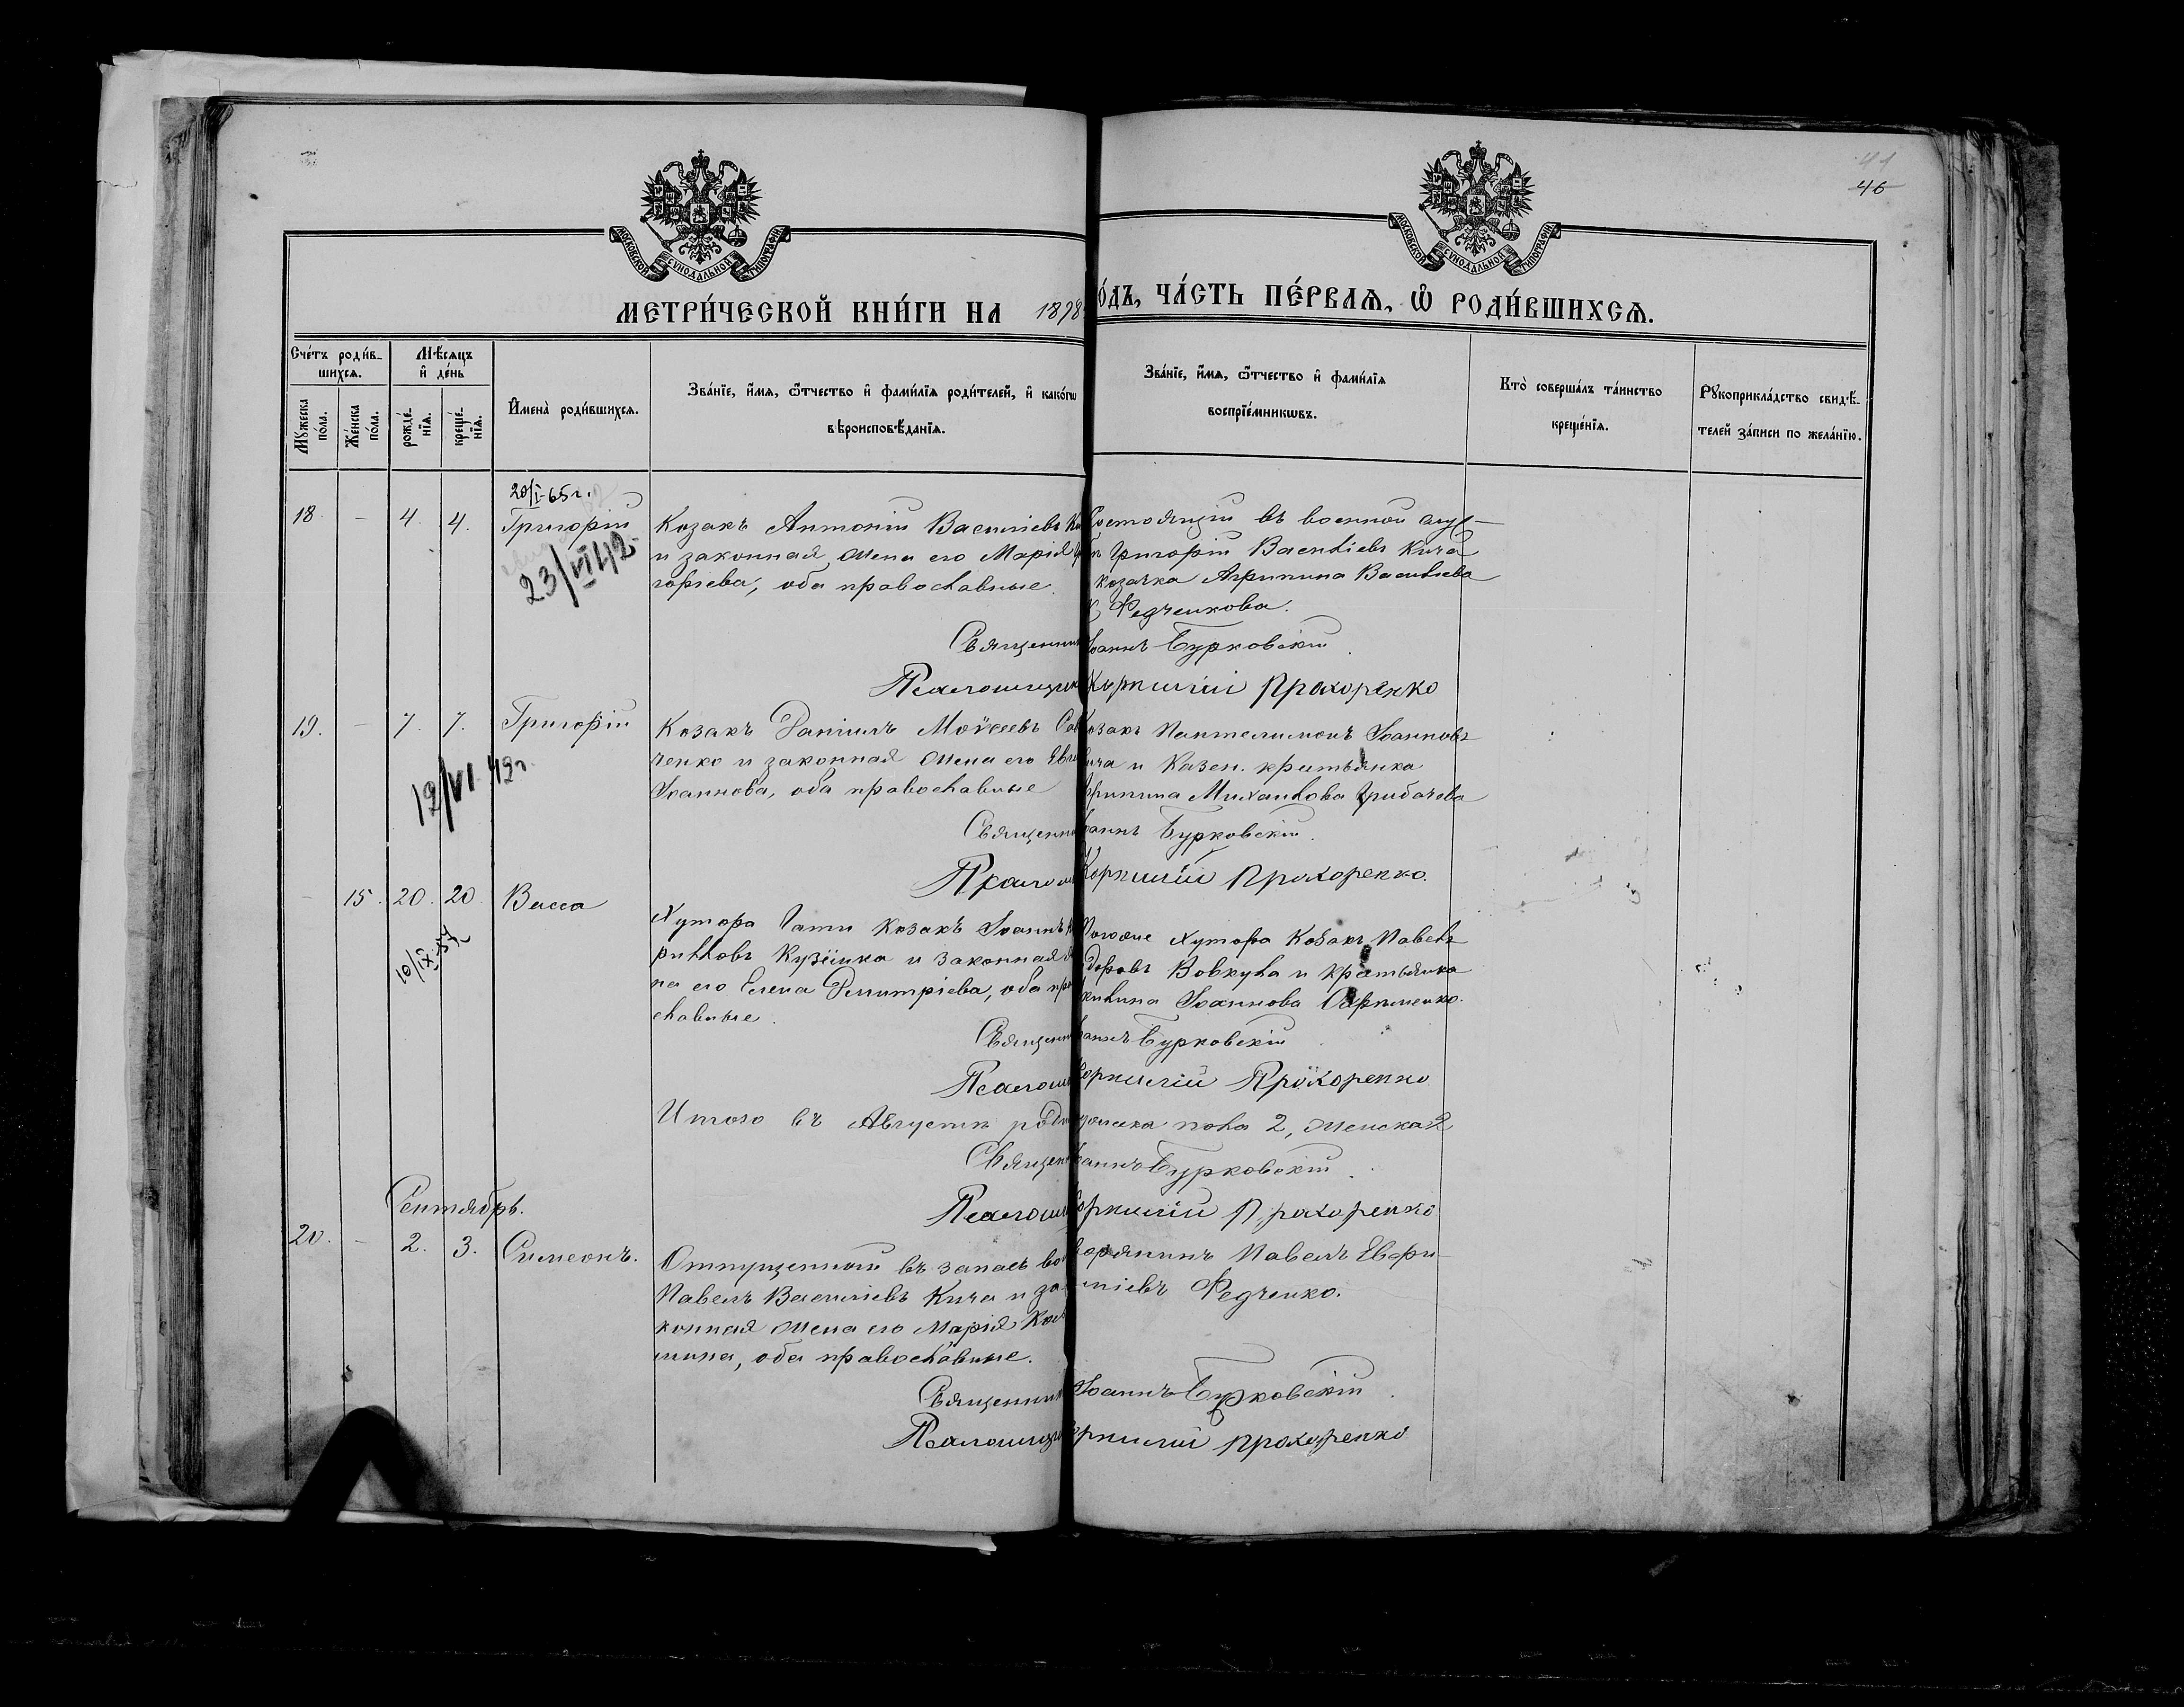 41
46
МОСКОВСКОЙ СУНОДАЛЬНОЙ ТИПОГРАФІИ
МОСКОВСКОЙ СУНОДАЛЬНОЙ ТИПОГРАФІИ
МЕТРИ́ЧЕСКОЙ КНИ́ГИ НА 1898
О́ДЪ, ЧА́СТЬ ПЕ́РВАѦ, Ѡ҆ РОДИ́ВШИХСѦ.
Сче́тъ роди́в-
шихсѧ.
Му́жеска
по́ла.
Же́нска
по́ла.
Мѣ́сѧцъ
и҆ де́нь
рожде́-
нїѧ.
креще́-
нїѧ.
И҆мена̀ роди́вшихсѧ.
Зва́нїе, и҆́мѧ, ѻ҆́тчество и҆ фами́лїѧ роди́телей, и҆ како́гѡ
вѣроисповѣ́данїѧ.
Зва́нїе, и҆́мѧ, ѻ҆́тчество и҆ фами́лїѧ
воспрїе́мникѡвъ.
Кто̀ соверша́лъ та́инство
креще́нїѧ.
Рꙋкоприкла́дство свидѣ́-
телей за́писи по жела́нїю.
20/I-65 г.
18. - 4. 4. Григорій
23/VI 42
Козакъ Антоній Васильевъ
и законная жена его Марія
горіева, оба православные.
Состоящій въ военной служ-
Григорій Васильевъ Кича
козачка Агрипина Васильева
Федченкова.
Священник Іоаннъ Бурковскій
Псаломщик Корнилій Прохоренко
19. - 7. 7. Григорій
12/VI 42 г.
Козакъ Даніилъ Моѵсеевъ Сав
ченко и законная жена его
Іоаннова, оба православные
козакъ Пантелимонъ Іоанновъ
и Казен. крестьянка
Агрипина Михаилова Грибачева
Священник Іоаннъ Бурковскій.
Псаломщ Корнилій Прохоренко.
- 15. 20. 20 Васса
10/IX-57 г
Хутора Гати козакъ Іоаннъ
Кузёмка и законная
на его Елена Димитріева, оба пра
славные.
Тогоже хутора козакъ Павелъ
Вовкула и крестьянка
Іоаннова
Священник Іоаннъ Бурковскій
Псаломщ Корнилій Прохоренко
Итого въ Августѣ роди
мужска пола 2, женска 2
Священ Іоаннъ Бурковскій.
Псаломщ Корнилій Прохоренко
Сентябрь.
20. - 2. 3. Симеонъ.
Отпущенный въ запасъ
Павелъ Васильевъ Кича и за-
конная жена его Марія Кос
мина, оба православные.
Дворянинъ Павелъ
Федченко.
Священник Іоаннъ Бурковскій.
Псаломщик Корнилій Прохоренко